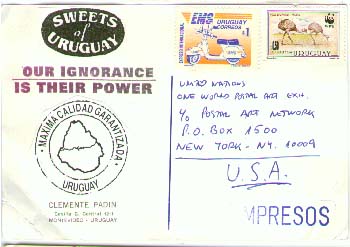 SWEETS
of
URUGUAY
OUR IGNORANCE
IS THEIR POWER
MAXIMA CALIDAD GARANTIZADA
URUGUAY
CLEMENTE PADIN
Casilla C. Central 1211
MONTEVIDEO - URUGUAY
EMS
URUGUAY
CORREO
$1
URUGUAY
UNITED NATIONS
ONE WORLD POSTAL ART EXH.
c/o POSTAL ART NETWORK
P.O. BOX 1500
NEW YORK - NY. 10009
U.S.A.
IMPRESOS